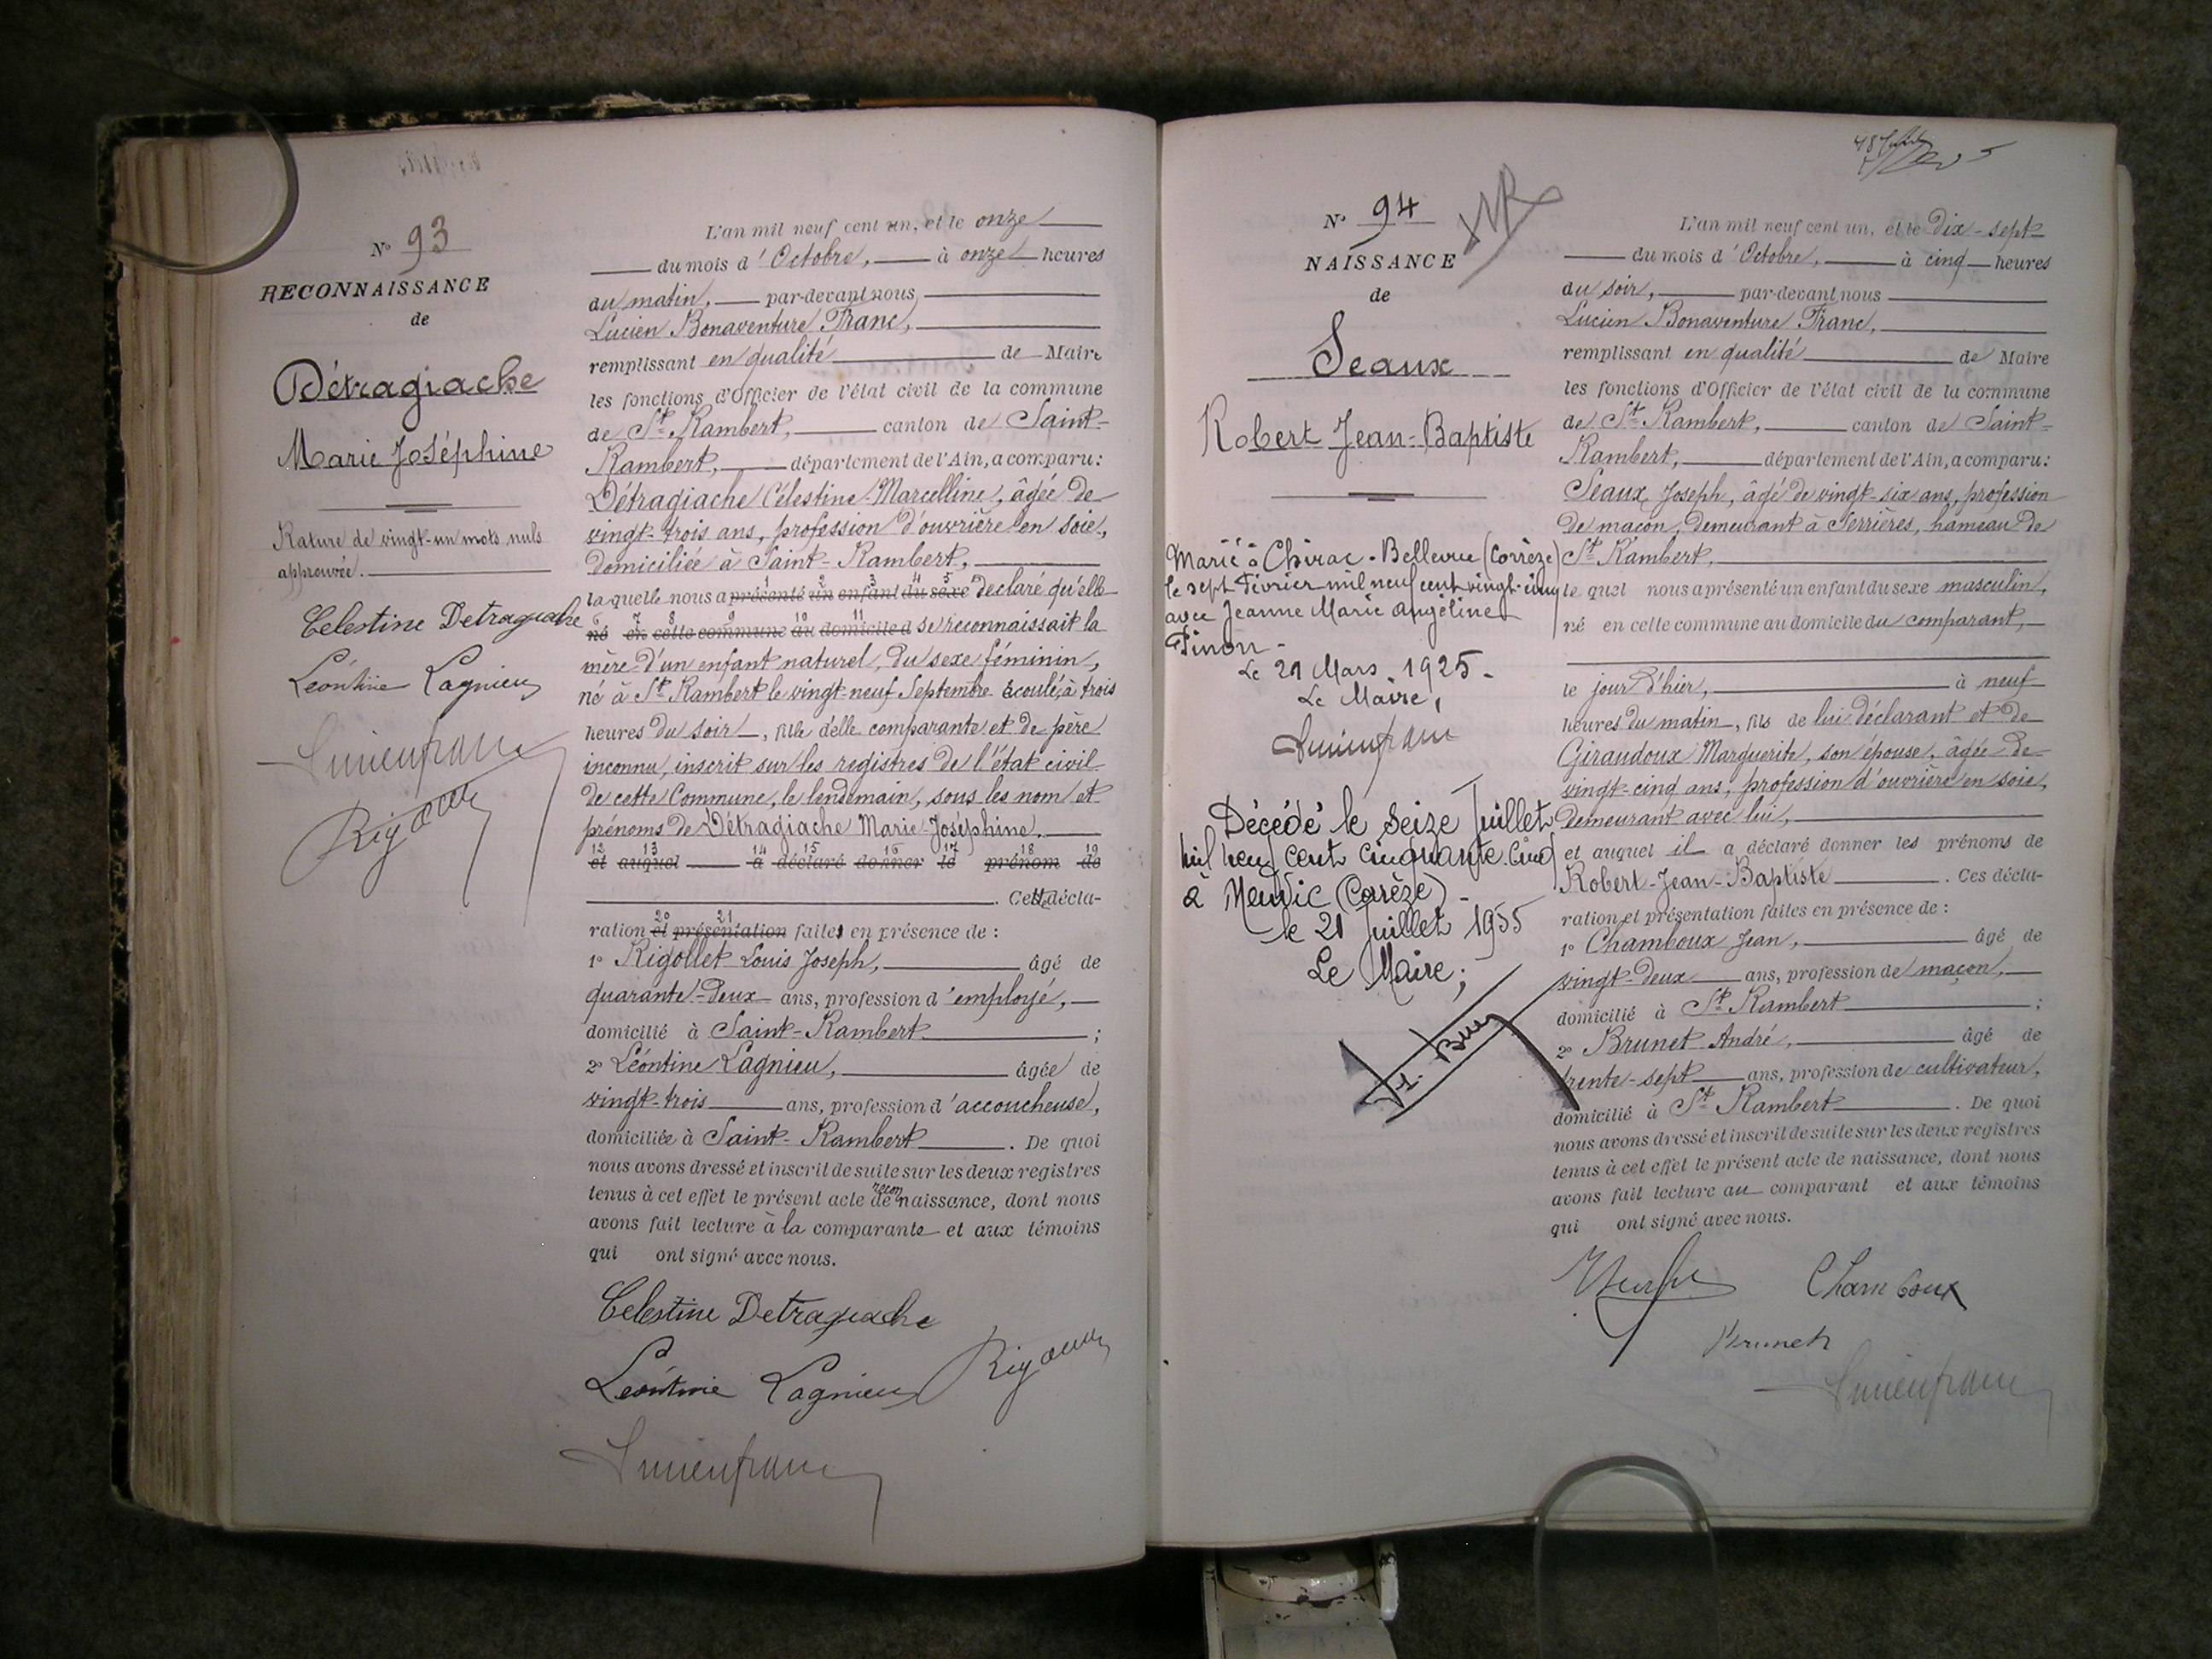 N° 93
RECONNAISSANCE
de
Détragiache
Marie Joséphine
Rature de vingt-un mots nuls
approuvée.
Celestine Detragiache
Léontine Lagnieu
L'an mil neuf cent un, et le onze
du mois d'Octobre, à onze heures
du matin, par-devant nous
Lucien Bonaventure Franc,
remplissant en qualité de Maire
les fonctions d'Officier de l'état civil de la commune
de St. Rambert, canton de Saint-
Rambert, département de l'Ain, a comparu:
Détragiache Célestine Marcelline, âgée de
vingt-trois ans, profession d'ouvrière en soie,
domiciliée à Saint-Rambert,
1 2 3 4 5
laquelle nous a présenté un enfant du sexe déclaré qu'elle
6 7 8 9 10 11
né en cette commune au domicile d se reconnaissait la
mère d'un enfant naturel, du sexe féminin,
né à St Rambert le vingt-neuf Septembre écoulé, à trois
heures du soir, fille d'elle comparante et de père
inconnu, inscrit sur les registres de l'état civil
de cette Commune, le lendemain, sous les nom et
prénoms de Détragiache Marie-Joséphine.
12 13 14 15 16 17 18 19
et auquel a déclaré donner le prénom de
. Cette décla-
20 21
ration et présentation faites en présence de :
1° Rigollet Louis Joseph, âgé de
quarante-deux ans, profession d'employé,
domicilié à Saint-Rambert ;
2° Léontine Lagnieu, âgée de
vingt-trois ans, profession d'accoucheuse,
domiciliée à Saint-Rambert. De quoi
nous avons dressé et inscrit de suite sur les deux registres
recon
tenus à cet effet le présent acte de naissance, dont nous
avons fait lecture à la comparante et aux témoins
qui ont signé avec nous.
Celestine Detragiache
Léontine Lagnieu
N° 94
NAISSANCE
de
Seaux
Robert Jean-Baptiste
Marié à Chirac-Bellevue (Corrèze)
le sept Février mil neuf cent vingt-cinq
avec Jeanne Marie Angéline
Finon -
Le 21 Mars 1925 -
Le Maire,
Décédé le seize Juillet
mil neuf cent cinquante-cinq
à Neuvic (Corrèze) -
le 21 Juillet 1955
Le Maire;
L'an mil neuf cent un, et le dix-sept
du mois d'Octobre, à cinq heures
du soir, par-devant nous
Lucien Bonaventure Franc,
remplissant en qualité de Maire
les fonctions d'Officier de l'état civil de la commune
de St. Rambert, canton de Saint-
Rambert, département de l'Ain, a comparu:
Seaux Joseph, âgé de vingt-six ans, profession
de maçon, demeurant à Serrières, hameau de
St Rambert,
lequel nous a présenté un enfant du sexe masculin,
né en cette commune au domicile du comparant,
le jour d'hier, à neuf
heures du matin, fils de lui déclarant et de
Giraudoux Marguerite, son épouse, âgée de
vingt-cinq ans, profession d'ouvrière en soie,
demeurant avec lui,
et auquel il a déclaré donner les prénoms de
Robert-Jean-Baptiste. Ces décla-
ration et présentation faites en présence de :
1° Chamboux Jean, âgé de
vingt-deux ans, profession de maçon,
domicilié à St Rambert ;
2° Brunet André, âgé de
trente-sept ans, profession de cultivateur,
domicilié à St Rambert. De quoi
nous avons dressé et inscrit de suite sur les deux registres
tenus à cet effet le présent acte de naissance, dont nous
avons fait lecture au comparant et aux témoins
qui ont signé avec nous.
Chamboux
Brunet